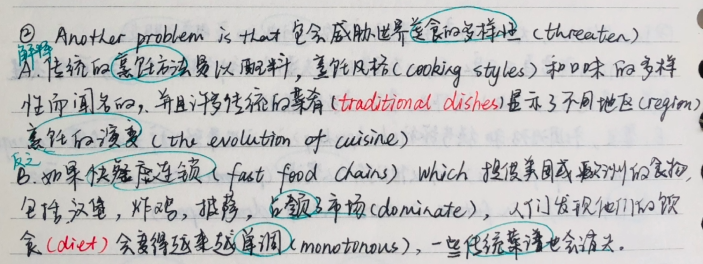 ② Another problem is that 它会威胁世界美食的多样性 (threaten)
解释
A. 传统的烹饪方法是以配料, 烹饪风格 (cooking styles) 和口味的多样
性而闻名的, 并且许多传统的菜肴 (traditional dishes) 显示了不同地区 (region)
烹饪的演变 (the evolution of cuisine)
反之
B. 如果快餐连锁 (fast food chains) which 提供美国或欧洲的食物,
包括汉堡, 炸鸡, 披萨, 占领了市场 (dominate), 人们发现他们的饮
食 (diet) 会变得越来越单调 (monotonous), 一些传统菜谱也会消失.